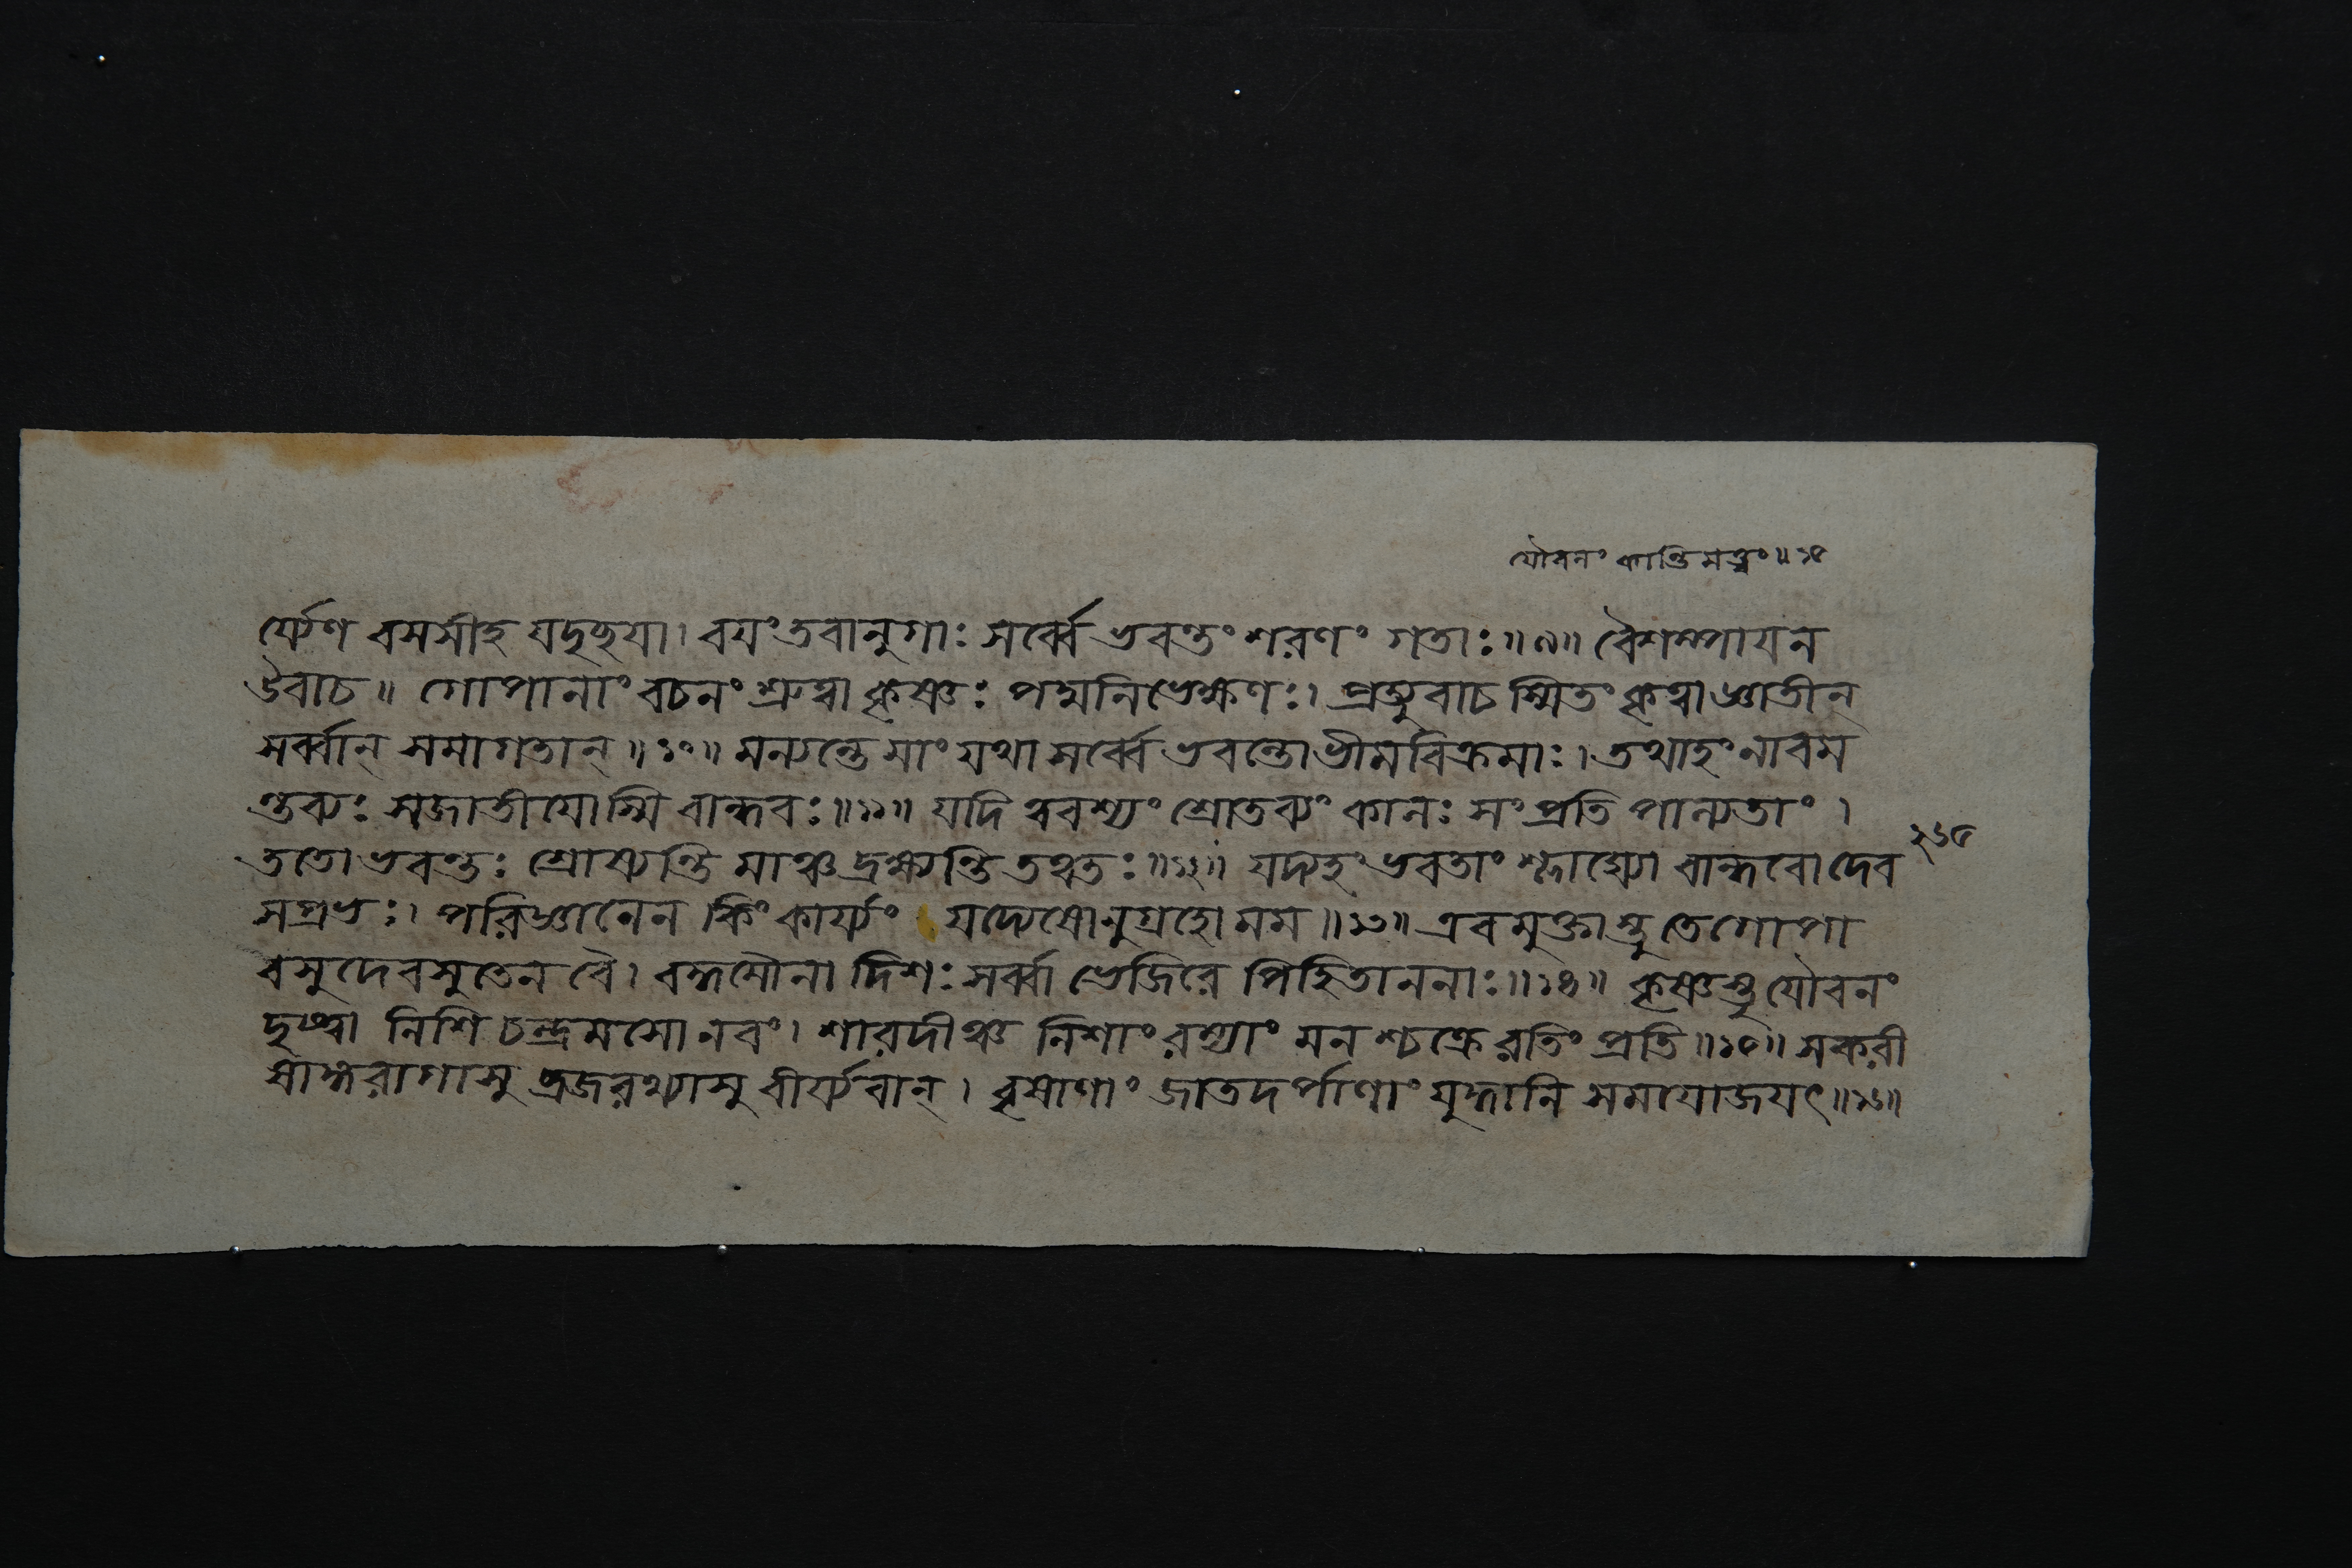 যৌবনং কান্তিমত্ত্বং॥১৫
র্য্যেণ বসসীহ যদৃচ্ছয়া। বয়ং তবানুগাঃ সর্ব্বে ভবন্তং শরণং গতাঃ॥৯॥ বৈশম্পায়ন
উবাচ॥ গোপানাং বচনং শ্রুত্বা কৃষ্ণঃ পদ্মনিভেক্ষণঃ। প্রত্যুবাচ স্মিতং কৃত্বা জ্ঞাতীন্
সর্ব্বান্ সমাগতান্॥১০॥ মন্যন্তে মাং যথা সর্ব্বে ভবন্তো ভীমবিক্রমাঃ। তথাহং নাবম
ন্তব্যঃ সজাতীয়োস্মি বান্ধবঃ॥১১॥ যদি ত্ববশ্যং শ্রোতব্যং কালঃ সংপ্রতি পাল্যতাং।
ততো ভবন্তঃ শ্রোষ্যন্তি মাঞ্চ দ্রক্ষ্যন্তি তত্ত্বতঃ॥১২॥ যদ্যহং ভবতাং শ্লাঘ্যো বান্ধবো দেব
২৬৫
সপ্রভঃ। পরিজ্ঞানেন কিং কার্য্যং যদ্যেষোনুগ্রহো মম॥১৩॥ এবমুক্তাস্তু তে গোপা
বসুদেবসুতেন বৈ। বদ্ধমৌনা দিশঃ সর্ব্বা ভেজিরে পিহিতাননাঃ॥১৪॥ কৃষ্ণস্তু যৌবনং
দৃষ্ট্বা নিশি চন্দ্রমসো নবং। শারদীঞ্চ নিশাং রম্যাং মনশ্চক্রে রতিং প্রতি॥১৫॥ স করী
ষাঙ্গরাগাসু ব্রজরথ্যাসু বীর্য্যবান্। বৃষাণাং জাতদর্পাণাং যুদ্ধানি সমযোজয়ৎ॥১৬॥